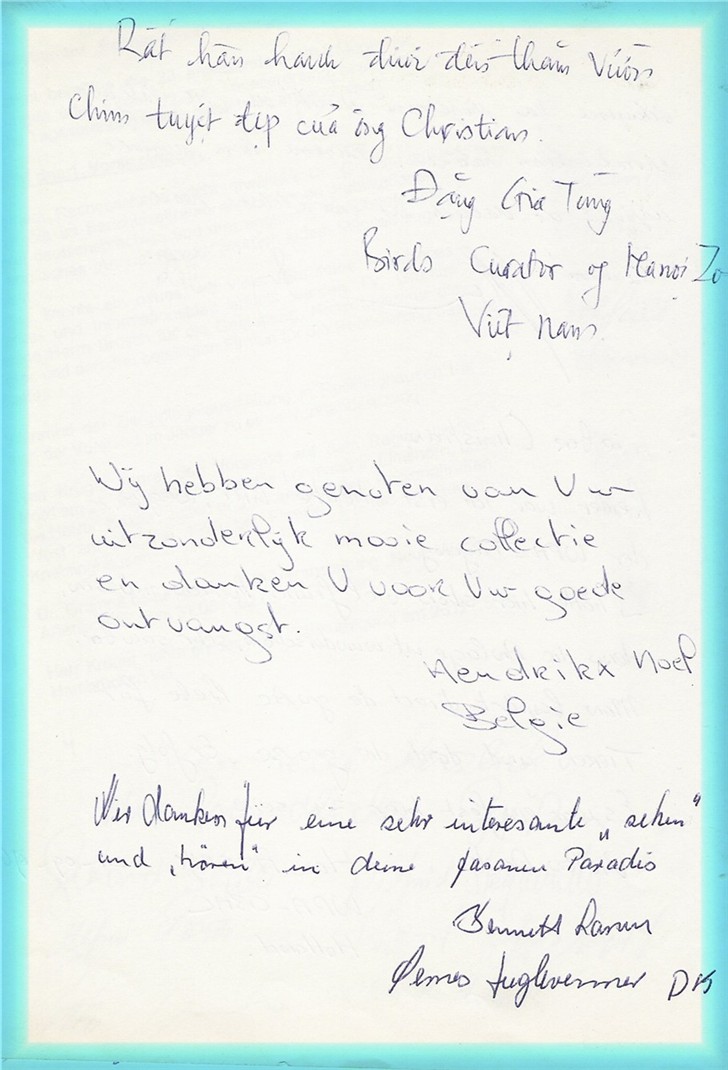 Rất hân hanh được đến thăm Vườn
Chim tuyệt đẹp của ông Christian.
Đặng Gia Tùng
Birds Curator of Hanoi Zo
Việt Nam
Wij hebben genoten van Uw
uitzonderlijk mooie collectie
en danken U voor Uw goede
ontvangst.
Hendrikx Noel
Belgie
Wir danken für eine sehr interesante „sehen"
und „hören" in deine fasanen Paradis
Kenneth Larsen
fuglevenner DK